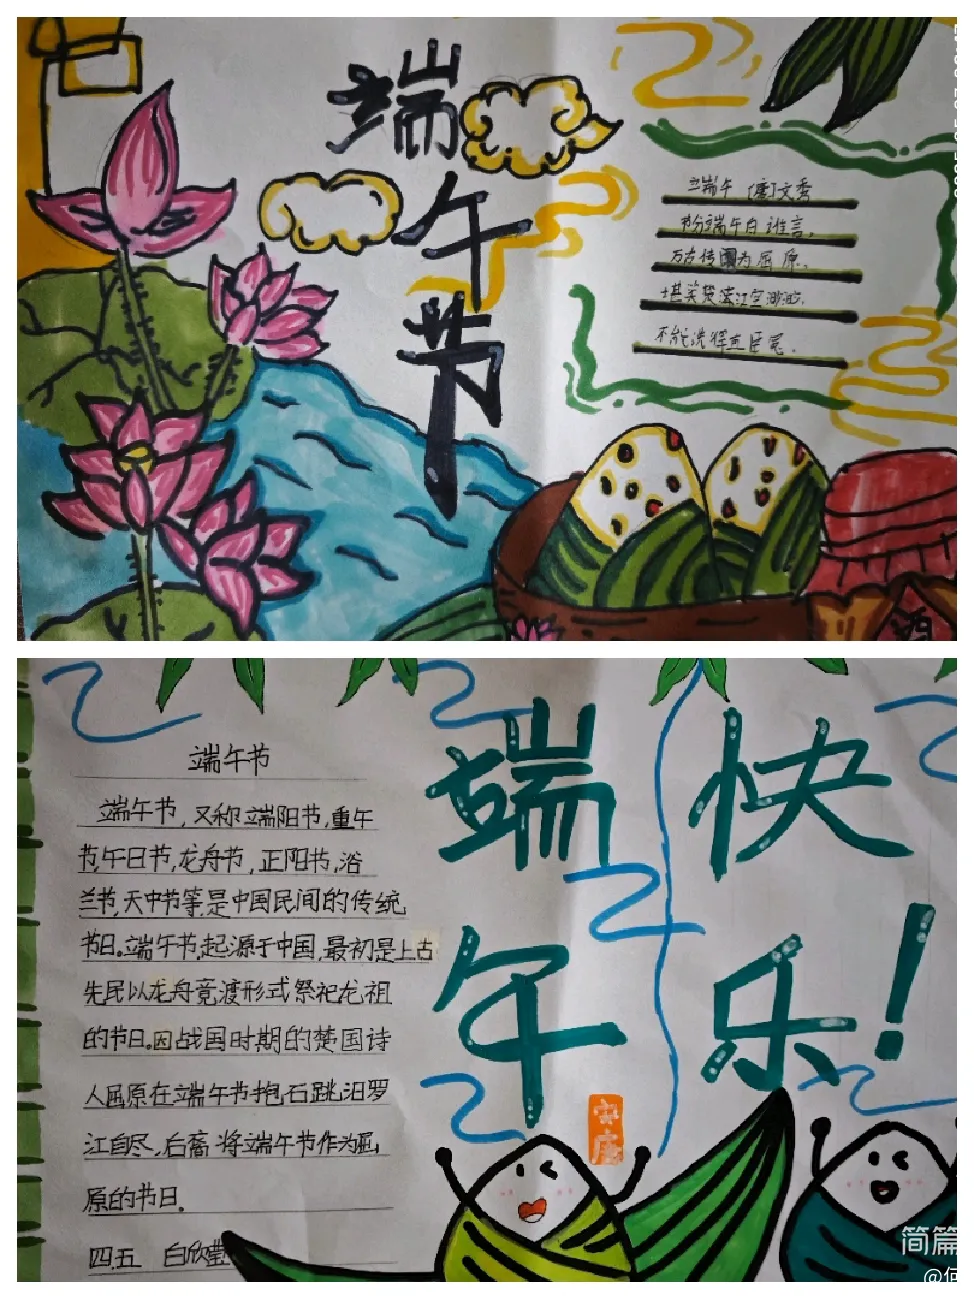 端
午
节
端午 (唐)文秀
节分端午自谁言,
万古传闻为屈原。
堪笑楚江空渺渺,
不能洗得直臣冤。
酒
端午节
端午节,又称端阳节,重午
节,午日节,龙舟节,正阳节,浴
兰节,天中节等,是中国民间的传统
节日。端午节,起源于中国,最初是上古
先民以龙舟竞渡形式祭祀龙祖
的节日。因战国时期的楚国诗
人屈原在端午节抱石跳汨罗
江自尽,后裔将端午节作为屈
原的节日。
四.五 白欣
端午
快乐!
安康
简篇